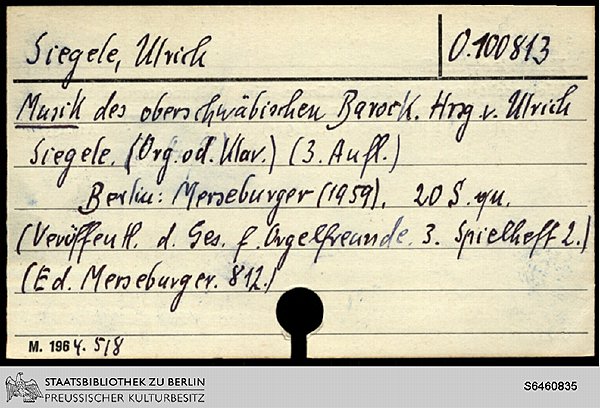 Siegele, Ulrich
O.100813
Musik des oberschwäbischen Barock. Hrsg v. Ulrich
Siegele. (Org. od. Klav.) (3. Aufl.)
Berlin: Merseburger (1959). 20 S. qu.
(Veröffentl. d. Ges. f. Orgelfreunde. 3. Spielheft 2.)
(Ed. Merseburger. 812.)
M. 1964. 518
STAATSBIBLIOTHEK ZU BERLIN
PREUSSISCHER KULTURBESITZ
S6460835